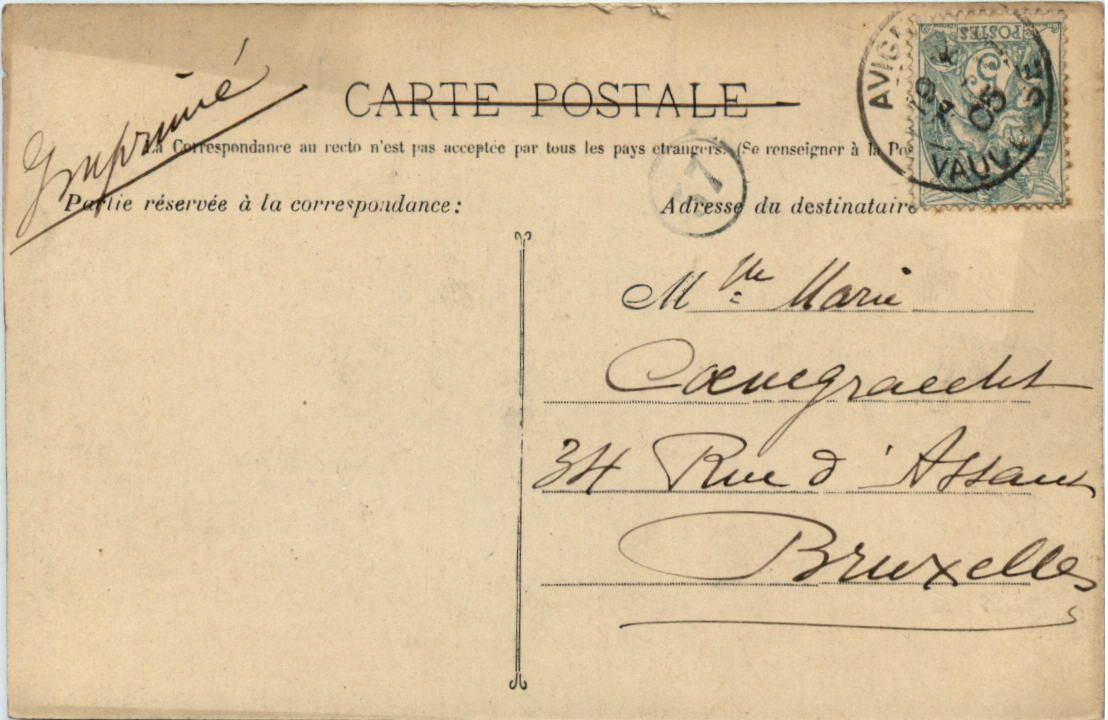 Imprimé
CARTE POSTALE
La Correspondance au recto n'est pas acceptée par tous les pays etrangers. (Se renseigner à la Pos
Partie réservée à la correspondance:
Adresse du destinataire
AVIG
05
VAUV
POSTES
5
57
Mlle Marie
Coenegracht
34 Rue d'Assaut
Bruxelles